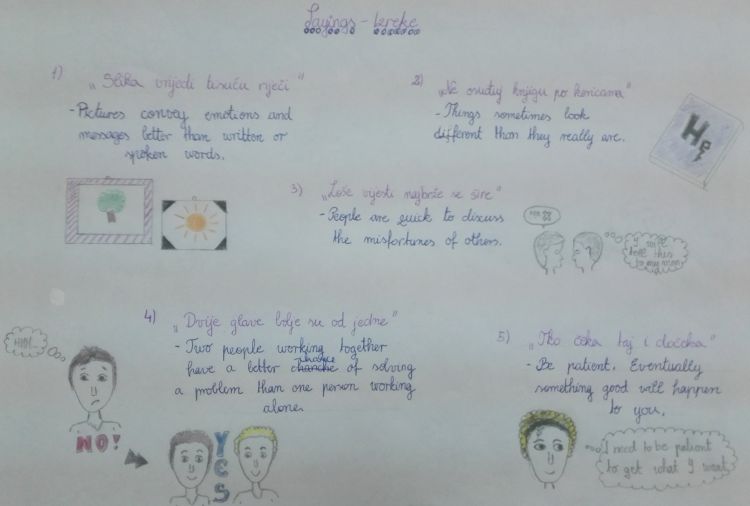 Sayings - Izreke
1)
„Slika vrijedi tisuću riječi"
- Pictures convey emotions and
messages better than written or
spoken words.
2)
„Ne osuđuj knjigu po koricama"
- Things sometimes look
different than they really are.
3)
„Loše vijesti najbrže se šire"
- People are quick to discuss
the misfortunes of others.
I will
tell this
to my mom
4)
„Dvije glave bolje su od jedne"
- Two people working together
chance
have a better chanche of solving
a problem than one person working
alone.
NO!
YES
5)
„Tko čeka taj i dočeka"
- Be patient. Eventually
something good will happen
to you.
I need to be patient
to get what I want